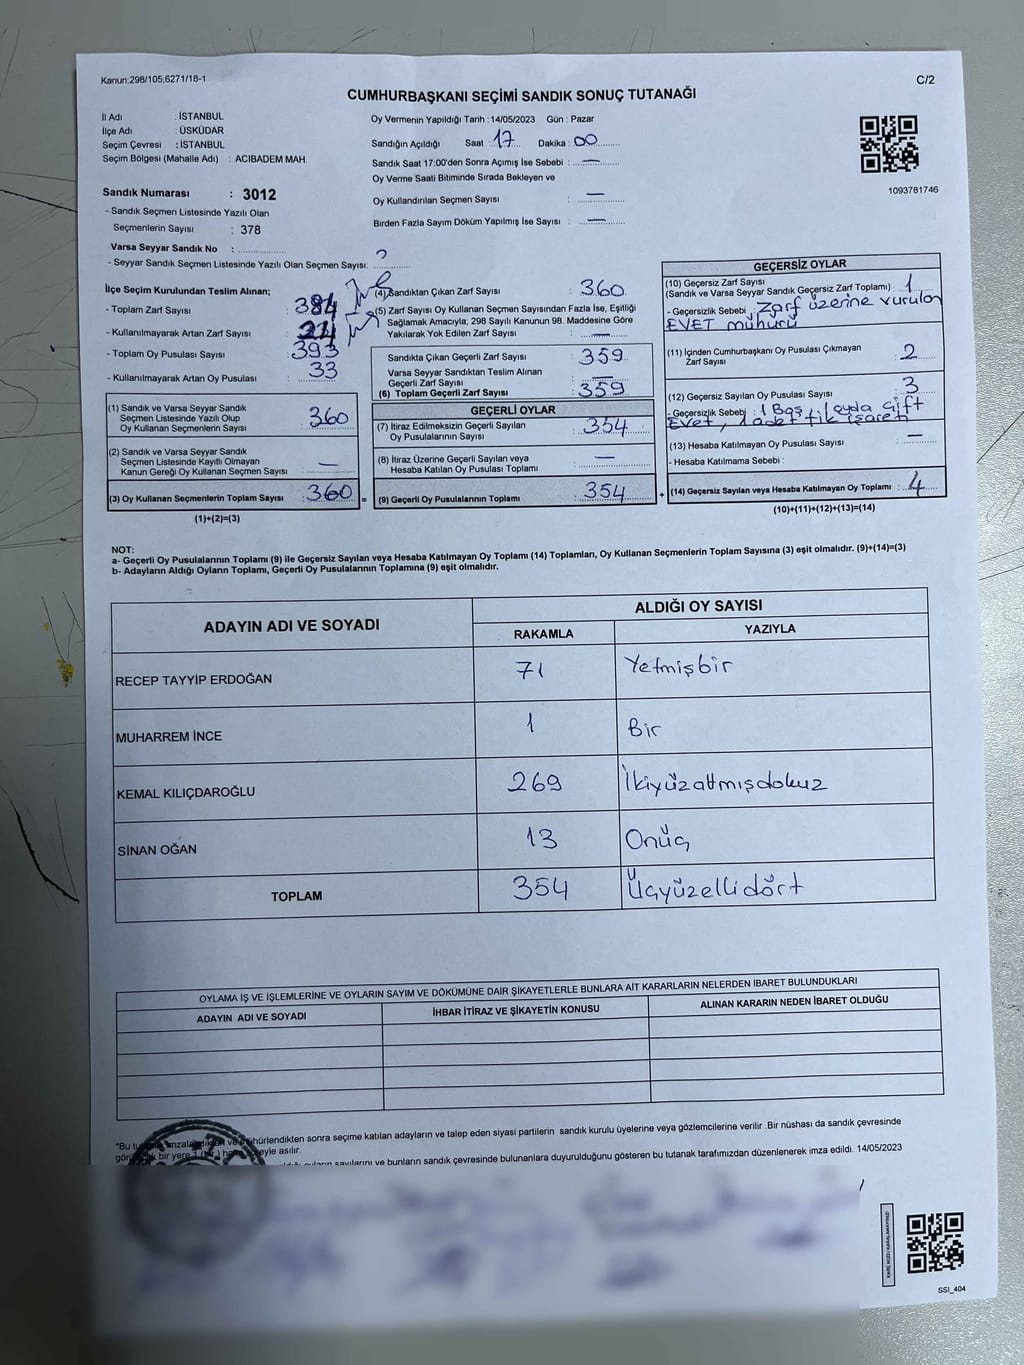 Kanun;298/105,6271/16-1
C/2
CUMHURBAŞKANI SEÇİMİ SANDIK SONUÇ TUTANAĞI
İl Adı : İSTANBUL
İlçe Adı : ÜSKÜDAR
Seçim Çevresi : İSTANBUL
Seçim Bölgesi (Mahalle Adı) : ACIBADEM MAH.
Sandık Numarası : 3012
- Sandık Seçmen Listesinde Yazılı Olan
Seçmenlerin Sayısı : 378
Varsa Seyyar Sandık No :
- Seyyar Sandık Seçmen Listesinde Yazılı Olan Seçmen Sayısı:
Oy Vermenin Yapıldığı Tarih : 14/05/2023 Gün : Pazar
Sandığın Açıldığı Saat : 17 Dakika : 00
Sandık Saat 17:00'den Sonra Açımış İse Sebebi : —
Oy Verme Saati Bitiminde Sırada Bekleyen ve
Oy Kullandırılan Seçmen Sayısı : —
Birden Fazla Sayım Döküm Yapılmış İse Sayısı : —
1093781746
İlçe Seçim Kurulundan Teslim Alınan;
- Toplam Zarf Sayısı : 384
- Kullanılmayarak Artan Zarf Sayısı :
- Toplam Oy Pusulası Sayısı : 393
- Kullanılmayarak Artan Oy Pusulası : 33
(1) Sandık ve Varsa Seyyar Sandık
Seçmen Listesinde Yazılı Olup
Oy Kullanan Seçmenlerin Sayısı : 360
(2) Sandık ve Varsa Seyyar Sandık
Seçmen Listesinde Kayıtlı Olmayan
Kanun Gereği Oy Kullanan Seçmen Sayısı : —
(3) Oy Kullanan Seçmenlerin Toplam Sayısı : 360 =
(1)+(2)=(3)
(4) Sandıktan Çıkan Zarf Sayısı : 360
(5) Zarf Sayısı Oy Kullanan Seçmen Sayısından Fazla İse, Eşitliği
Sağlamak Amacıyla; 298 Sayılı Kanunun 98. Maddesine Göre
Yakılarak Yok Edilen Zarf Sayısı : —
Sandıkta Çıkan Geçerli Zarf Sayısı : 359
Varsa Seyyar Sandıktan Teslim Alınan
Geçerli Zarf Sayısı : —
(6) Toplam Geçerli Zarf Sayısı : 359
GEÇERLİ OYLAR
(7) İtiraz Edilmeksizin Geçerli Sayılan
Oy Pusulalarının Sayısı : 354
(8) İtiraz Üzerine Geçerli Sayılan veya
Hesaba Katılan Oy Pusulası Toplamı : —
(9) Geçerli Oy Pusulalarının Toplamı : 354 +
GEÇERSİZ OYLAR
(10) Geçersiz Zarf Sayısı
(Sandık ve Varsa Seyyar Sandık Geçersiz Zarf Toplamı) : 1
- Geçersizlik Sebebi : Zarf üzerine vurulan
EVET mühürü
(11) İçinden Cumhurbaşkanı Oy Pusulası Çıkmayan
Zarf Sayısı : 2
(12) Geçersiz Sayılan Oy Pusulası Sayısı : 3
- Geçersizlik Sebebi : 1 Boş, 1 oyda çift
Evet, 1 adet tik işareti
(13) Hesaba Katılmayan Oy Pusulası Sayısı : —
- Hesaba Katılmama Sebebi :
(14) Geçersiz Sayılan veya Hesaba Katılmayan Oy Toplamı : 4
(10)+(11)+(12)+(13)=(14)
NOT:
a- Geçerli Oy Pusulalarının Toplamı (9) ile Geçersiz Sayılan veya Hesaba Katılmayan Oy Toplamı (14) Toplamları, Oy Kullanan Seçmenlerin Toplam Sayısına (3) eşit olmalıdır. (9)+(14)=(3)
b- Adayların Aldığı Oyların Toplamı, Geçerli Oy Pusulalarının Toplamına (9) eşit olmalıdır.
ADAYIN ADI VE SOYADI
ALDIĞI OY SAYISI
RAKAMLA YAZIYLA
RECEP TAYYİP ERDOĞAN 71 Yetmişbir
MUHARREM İNCE 1 Bir
KEMAL KILIÇDAROĞLU 269 İkiyüzatmışdokuz
SİNAN OĞAN 13 Onüç
TOPLAM 354 Üçyüzellidört
OYLAMA İŞ VE İŞLEMLERİNE VE OYLARIN SAYIM VE DÖKÜMÜNE DAİR ŞİKAYETLERLE BUNLARA AİT KARARLARIN NELERDEN İBARET BULUNDUKLARI
ADAYIN ADI VE SOYADI İHBAR İTİRAZ VE ŞİKAYETİN KONUSU ALINAN KARARIN NEDEN İBARET OLDUĞU
"Bu ve mühürlendikten sonra seçime katılan adayların ve talep eden siyasi partilerin sandık kurulu üyelerine veya gözlemcilerine verilir .Bir nüshası da sandık çevresinde
bir yere asılır.
oyların sayılarını ve bunların sandık çevresinde bulunanlara duyurulduğunu gösteren bu tutanak tarafımızdan düzenlenerek imza edildi. 14/05/2023
KARE KODU KARALAMAYINIZ!
SSI_404